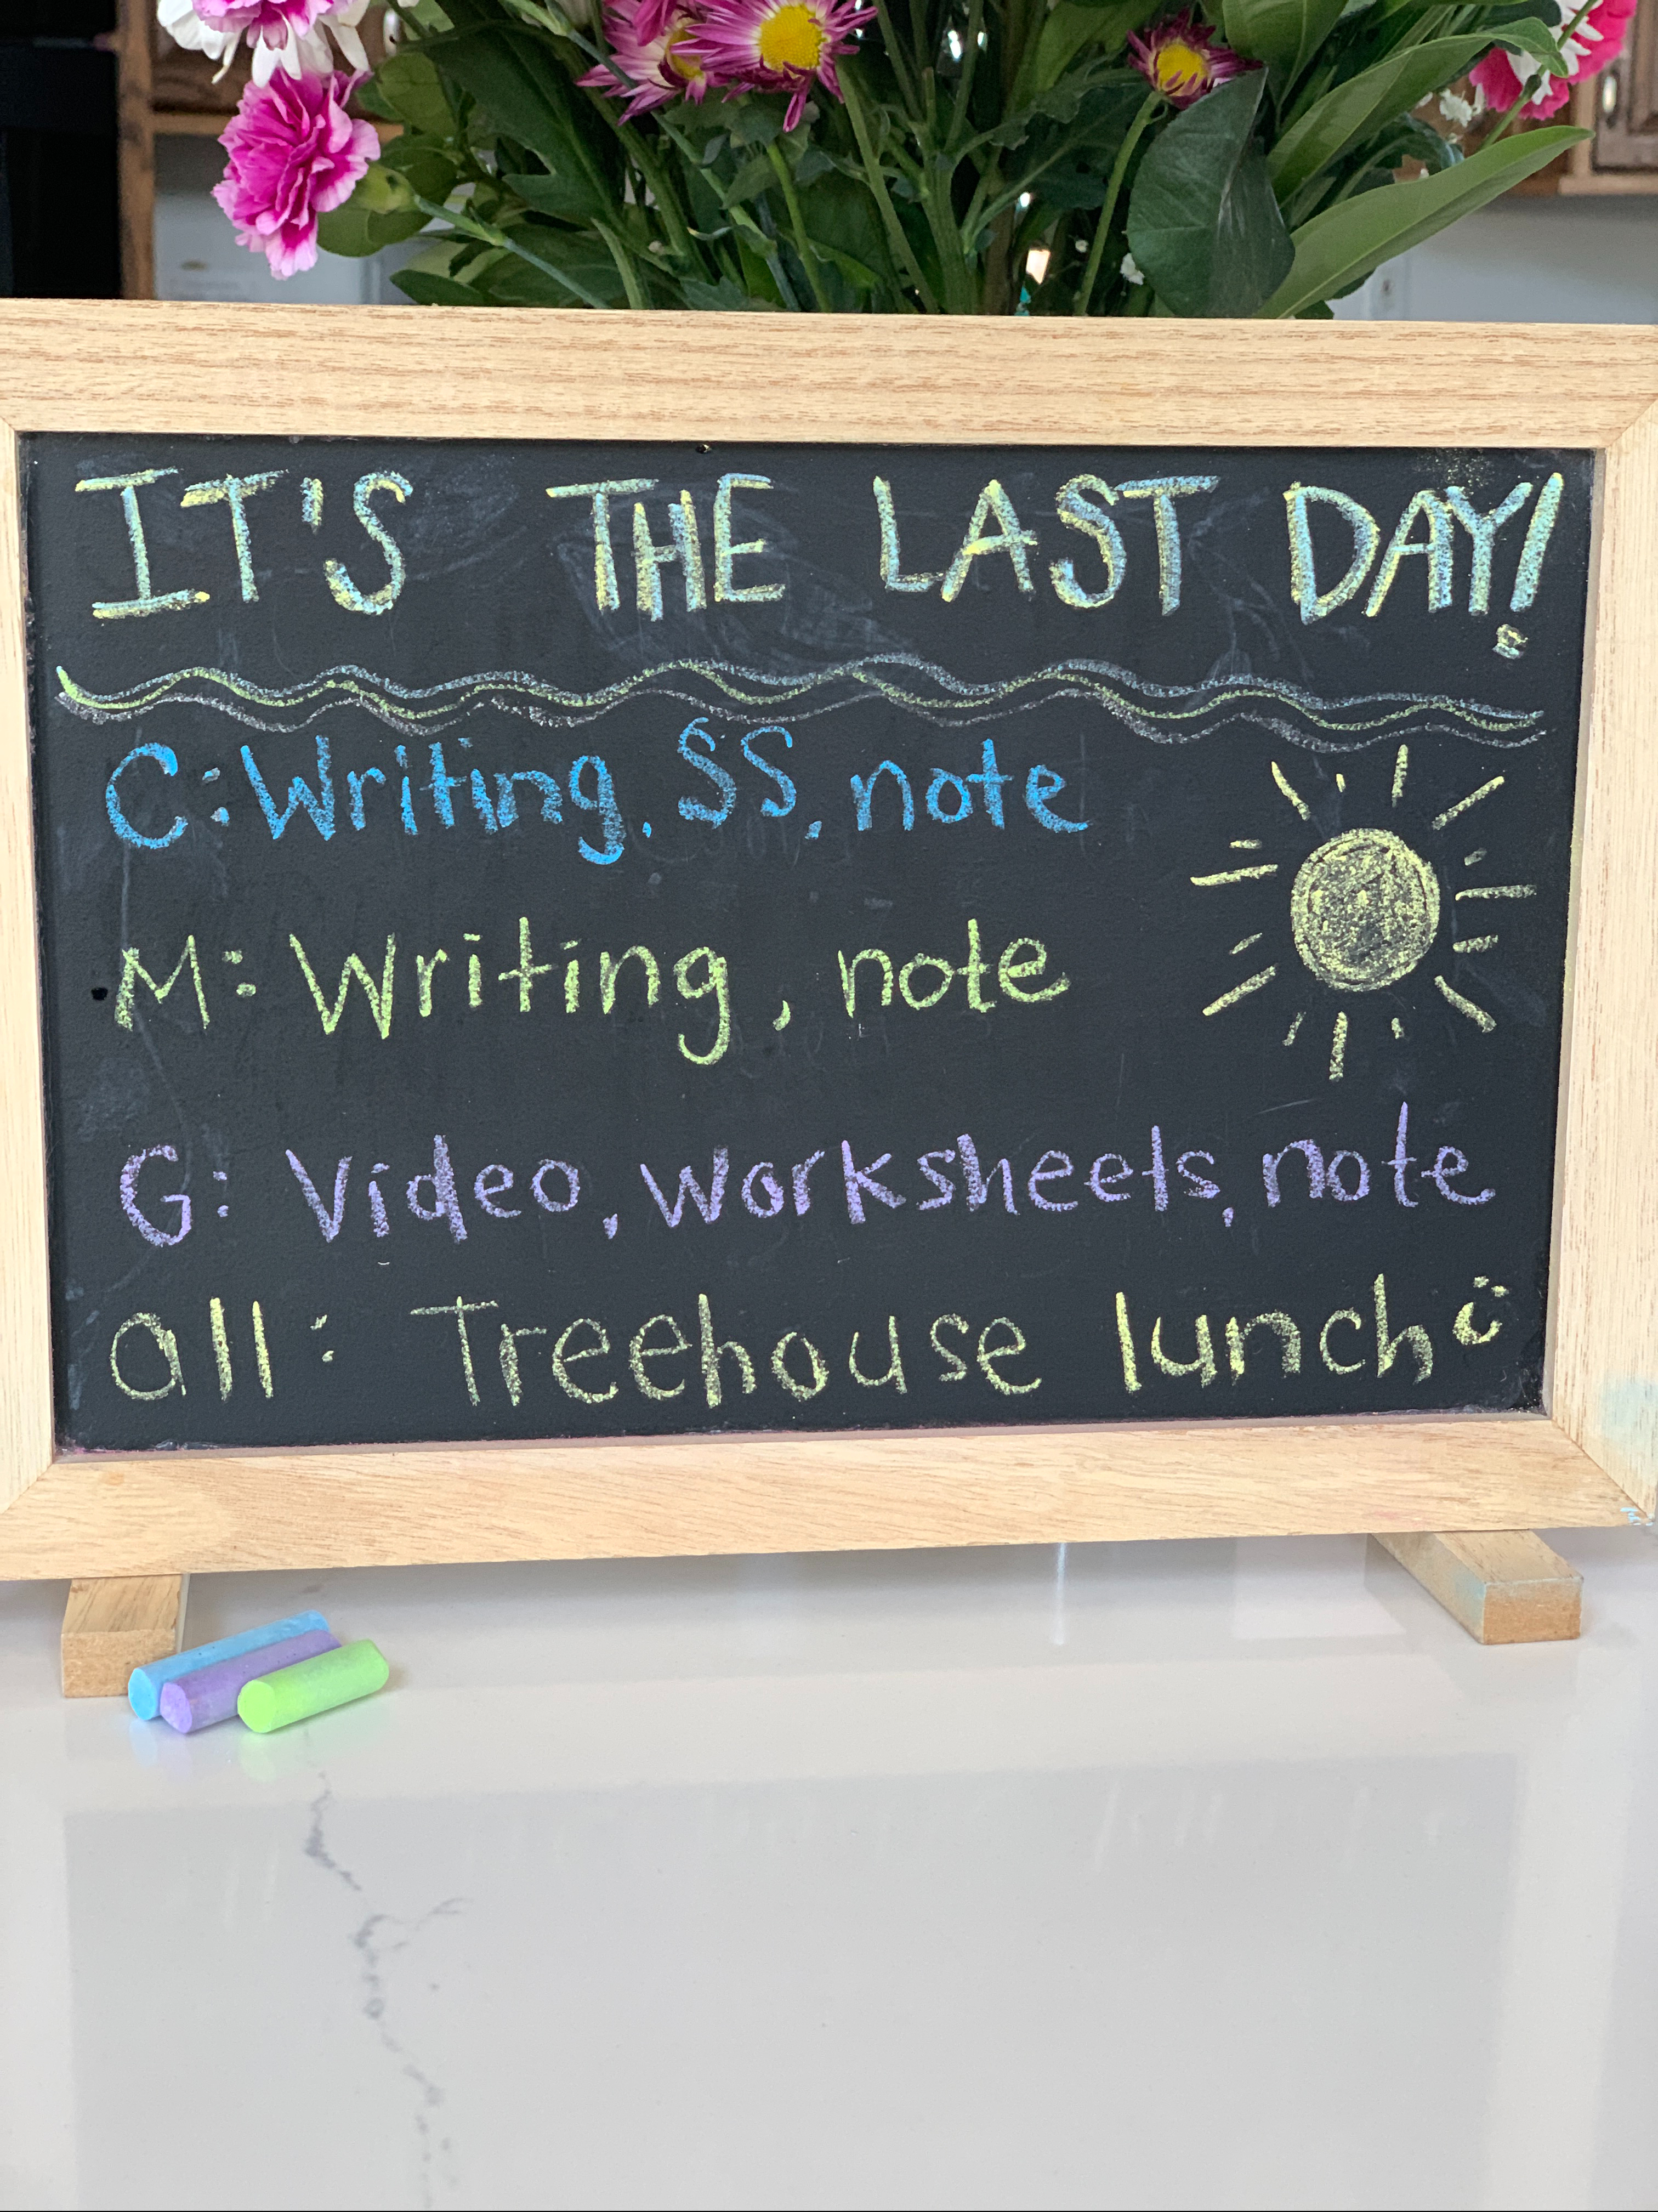 IT'S THE LAST DAY!
C: Writing, SS, note
M: Writing, note
G: Video, worksheets, note
all: Treehouse lunch